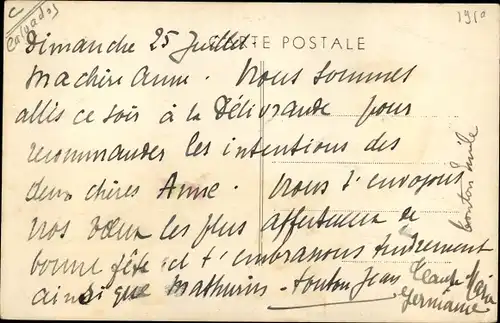 Calvados
1910
CARTE POSTALE
Dimanche 25 Juillet.
Ma chère Anne. Nous sommes
allés ce soir à la Délivrande pour
recommander les intentions des
deux chères Anne. Nous t'envoyons
nos vœux les plus affectueux de
bonne fête et t'embrassons tendrement
ainsi que Mathurin - tonton Jean
Claude
Germaine
tonton Emile